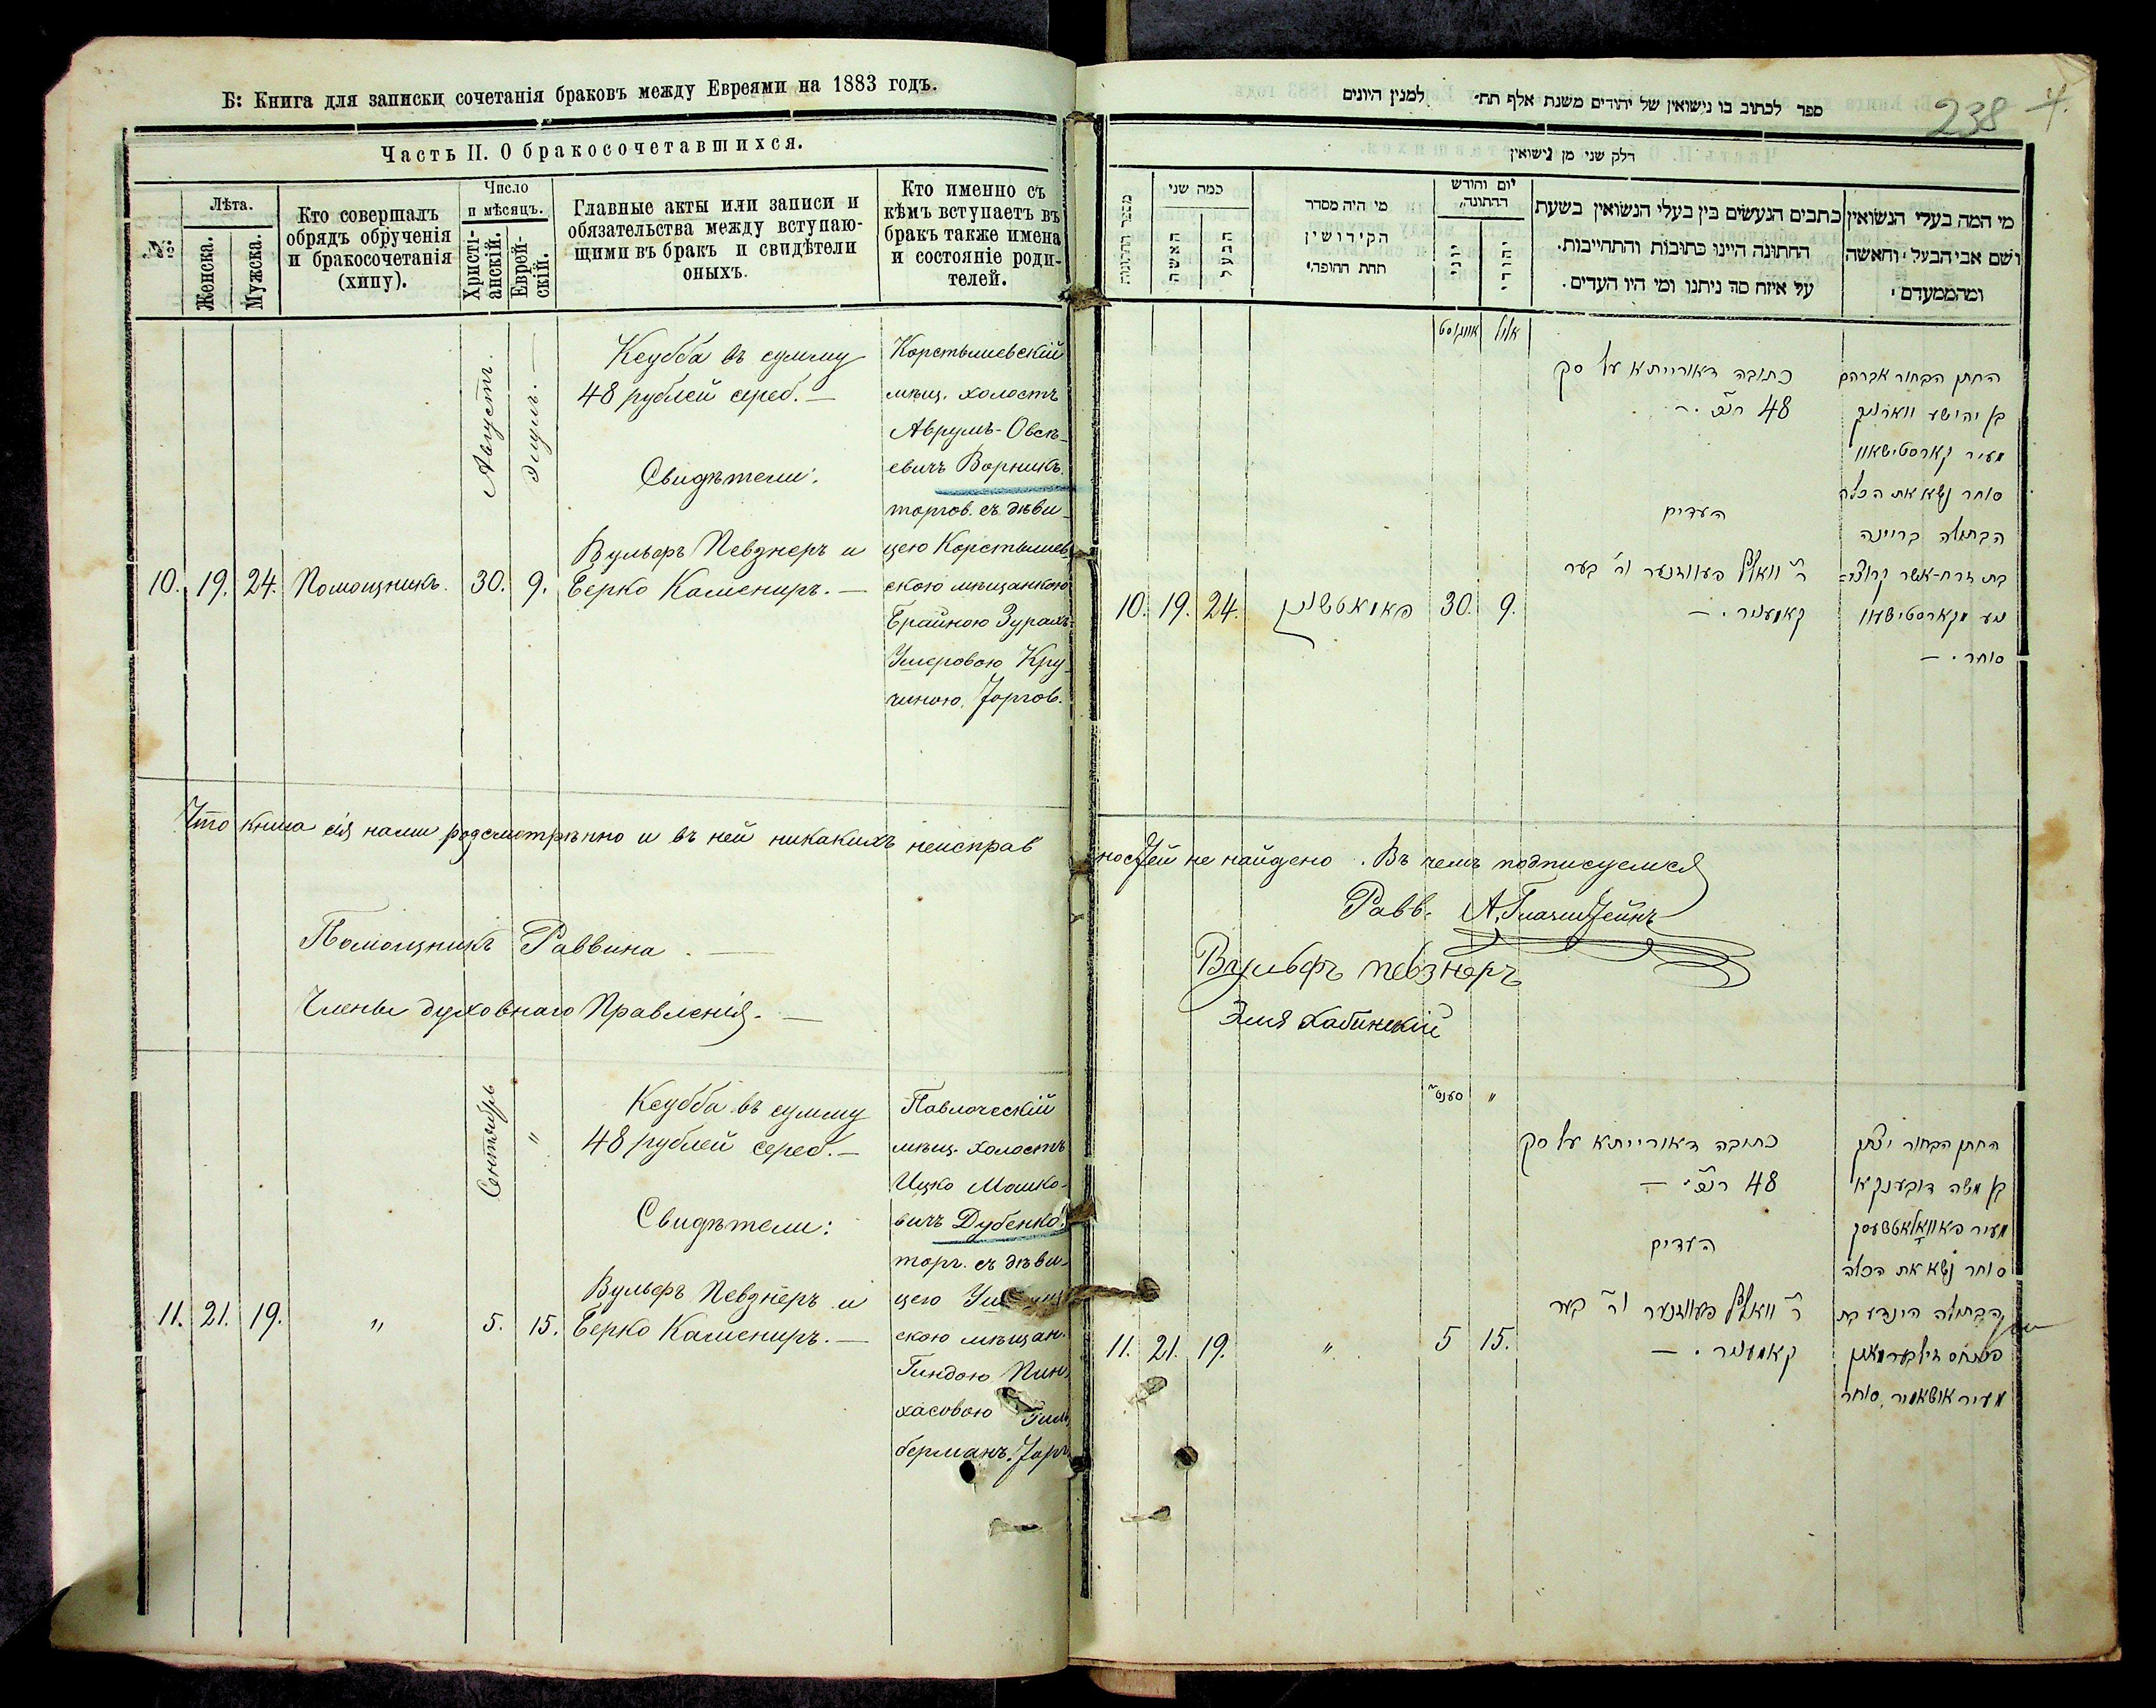 Б: Книга для записки сочетанія браковъ между Евреями на 1883 годъ.
Часть II. О бракосочетавшихся.
№
Лѣта.
Женска.
Мужска.
Кто совершалъ
обрядъ обрученія
и бракосочетанія
(хипу).
Число
и мѣсяцъ.
Христі-
анскій.
Еврей-
скій.
Главные акты или записи и
обязательства между вступаю-
щими въ бракъ и свидѣтели
оныхъ.
Кто именно съ
кѣмъ вступаетъ въ
бракъ также имена
и состояніе роди-
телей.
10. 19. 24. Помощникъ. 30. 9.
Августъ.
Элулъ. —
Ксубба въ сумму
48 рублей сереб. —
Свидѣтели:
Вульфъ Певзнеръ и
Берко Камениръ. —
Корстышевскій
мѣщ. холостъ
Аврумъ-Овсѣ-
евичъ Ворникъ.
торгов. съ дѣви-
цею Корстышев
скою мѣщанкою
Брайною Зурахъ-
Ушеровою Кру-
чиною. Торгов.
Что книга сія нами разсмотрѣнно и въ ней никакихъ неисправ
Помощникъ Раввина. —
Члены духовнаго Правленія. —
11. 21. 19. " 5. 15.
Сентябрь
"
Ксубба въ сумму
48 рублей сереб. —
Свидѣтели:
Вульфъ Певзнеръ и
Берко Камениръ. —
Паволоческій
мѣщ. холостъ
Ицко Мошко-
вичъ Дубенко.
торг. съ дѣви-
цею
скою мѣщан.
Гиндою Пин-
хасовою Гиль
берманъ. Торг.
238 4.
ספר לכתוב בו נישואין של יהודים משנת אלף תת״ למנין היונים
חלק שני מן נישואין
מספר החתונה
כמה שני
האשה
הבעל
מי היה מסדר
הקידושין
תחת החופה׃
יום וחודש
החתונה׃
יוני
יהודי
כתבים הנעשים בין בעלי הנשואין בשעת
החתונה היינו כתובות והתחייבות.
על איזה סך ניתנו ומי היו העדים.
מי המה בעלי הנשואין
ושם אבי הבעל והאשה
ומהממעדם׃
אויגוסט אלול
10. 19. 24. 30. 9.
כתובה דאורייתא על סך
48 רו״כ —
העדים
ר׳ וואלף פעווזנער ור׳ בער
קאמעניר. —
החתן הבחור אברהם
בן יהושע ווארניק
מעיר קארסטישאוו
סוחר נשא את הכלה
הבתולה בריינה
בת זרח-אשר קרוצי=
נע מקארסטישעוו
סוחר. —
ностей не найдено. Въ чемъ подписуемся
Равв. А. Глачштейнъ
Вульфъ певзнеръ
Эля Хабинскій
סענט׳ "
11. 21. 19. " 5 15.
כתובה דאורייתא על סך
48 רו״כ —
העדים
ר׳ וואלף פעווזנער ור׳ בער
קאמעניר. —
החתן הבחור יצחק
בן משה דובענקא
מעיר פאוואלאטשעסק
סוחר נשא את הכלה
הבתולה הינדע בת
פנחס הילבערמאן
מעיר אושאמיר, סוחר